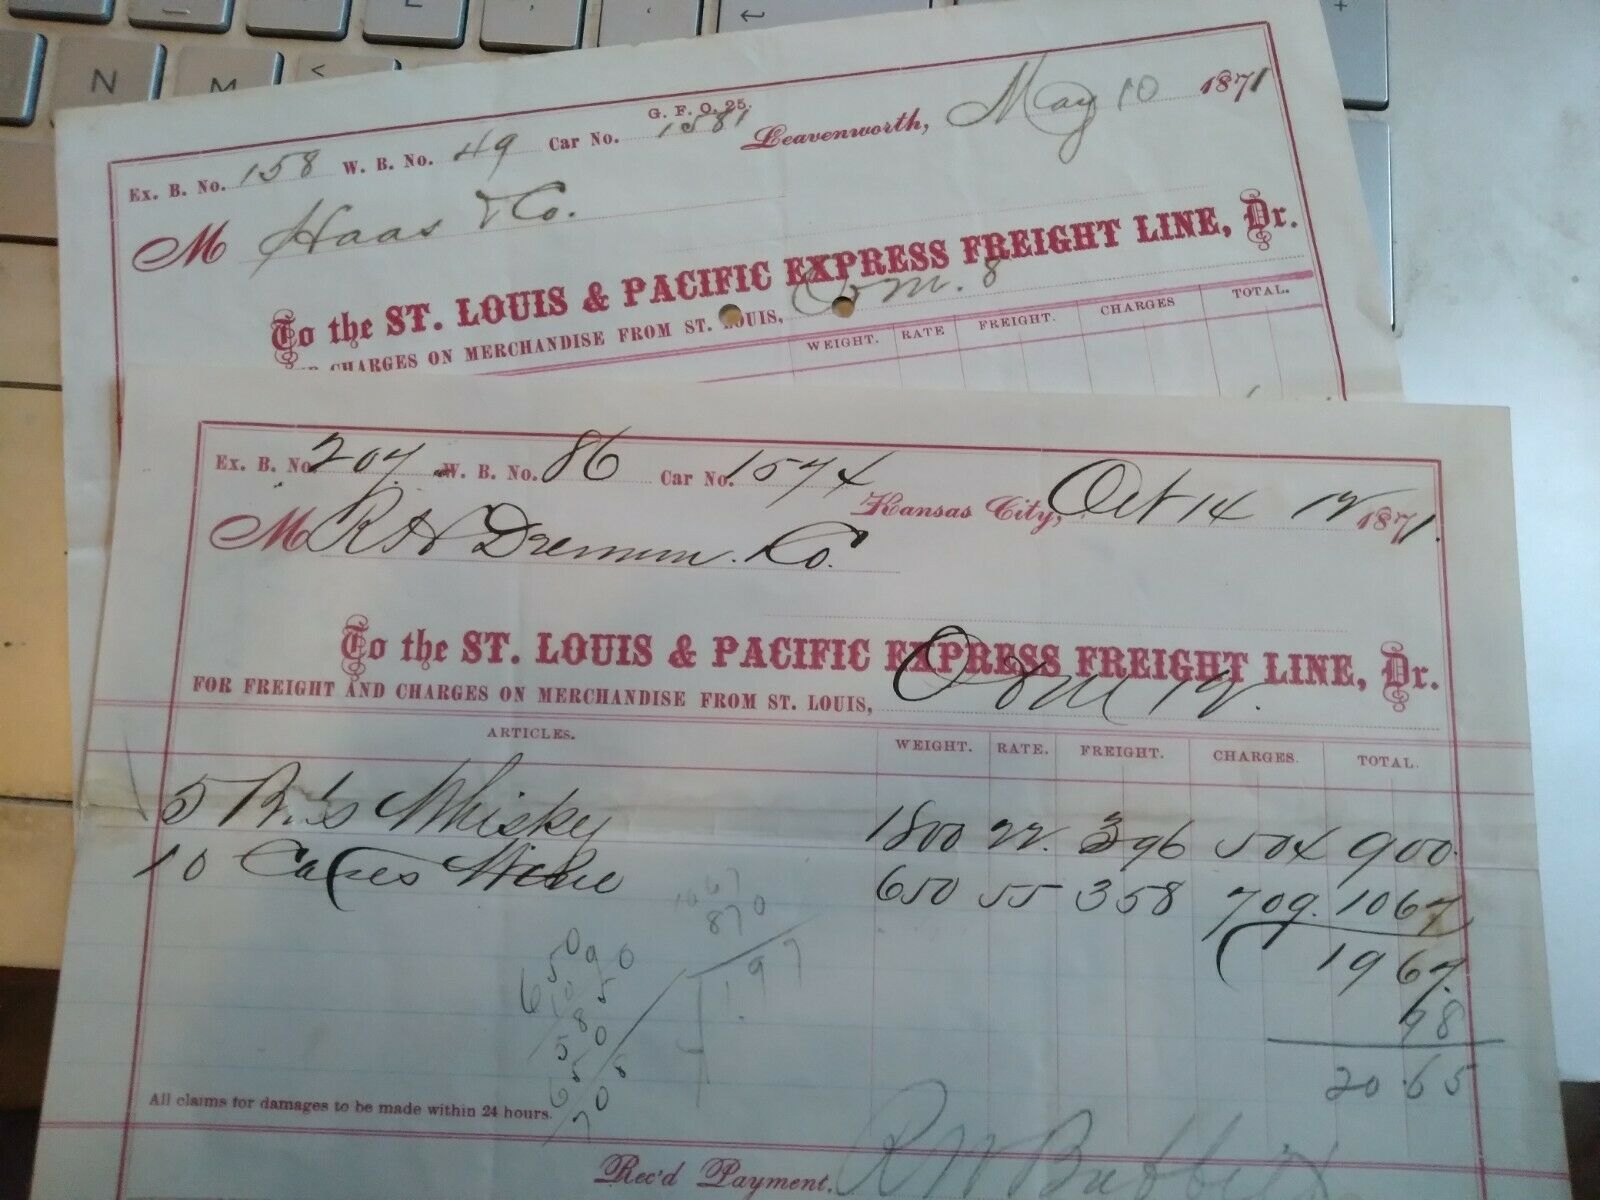 N M <
G. F. O. 25.
Ex. B. No. 158 W. B. No. 49 Car No. 1581 Leavenworth, May 10 1871
M Haas & Co.
To the ST. LOUIS & PACIFIC EXPRESS FREIGHT LINE, Dr.
CHARGES ON MERCHANDISE FROM ST. LOUIS, 8
WEIGHT. RATE FREIGHT. CHARGES TOTAL.
Ex. B. No. 207. W. B. No. 86 Car No. 1574 Kansas City, Oct 14 12 1871.
M R H Co.
To the ST. LOUIS & PACIFIC EXPRESS FREIGHT LINE, Dr.
FOR FREIGHT AND CHARGES ON MERCHANDISE FROM ST. LOUIS, 12.
ARTICLES. WEIGHT. RATE. FREIGHT. CHARGES. TOTAL.
5 Whisky 1800 22. 396 504 900
10 Cases 650 55 358 709. 1067
1967
98
2065
1067
870
1.97
All claims for damages to be made within 24 hours.
Rec'd Payment.